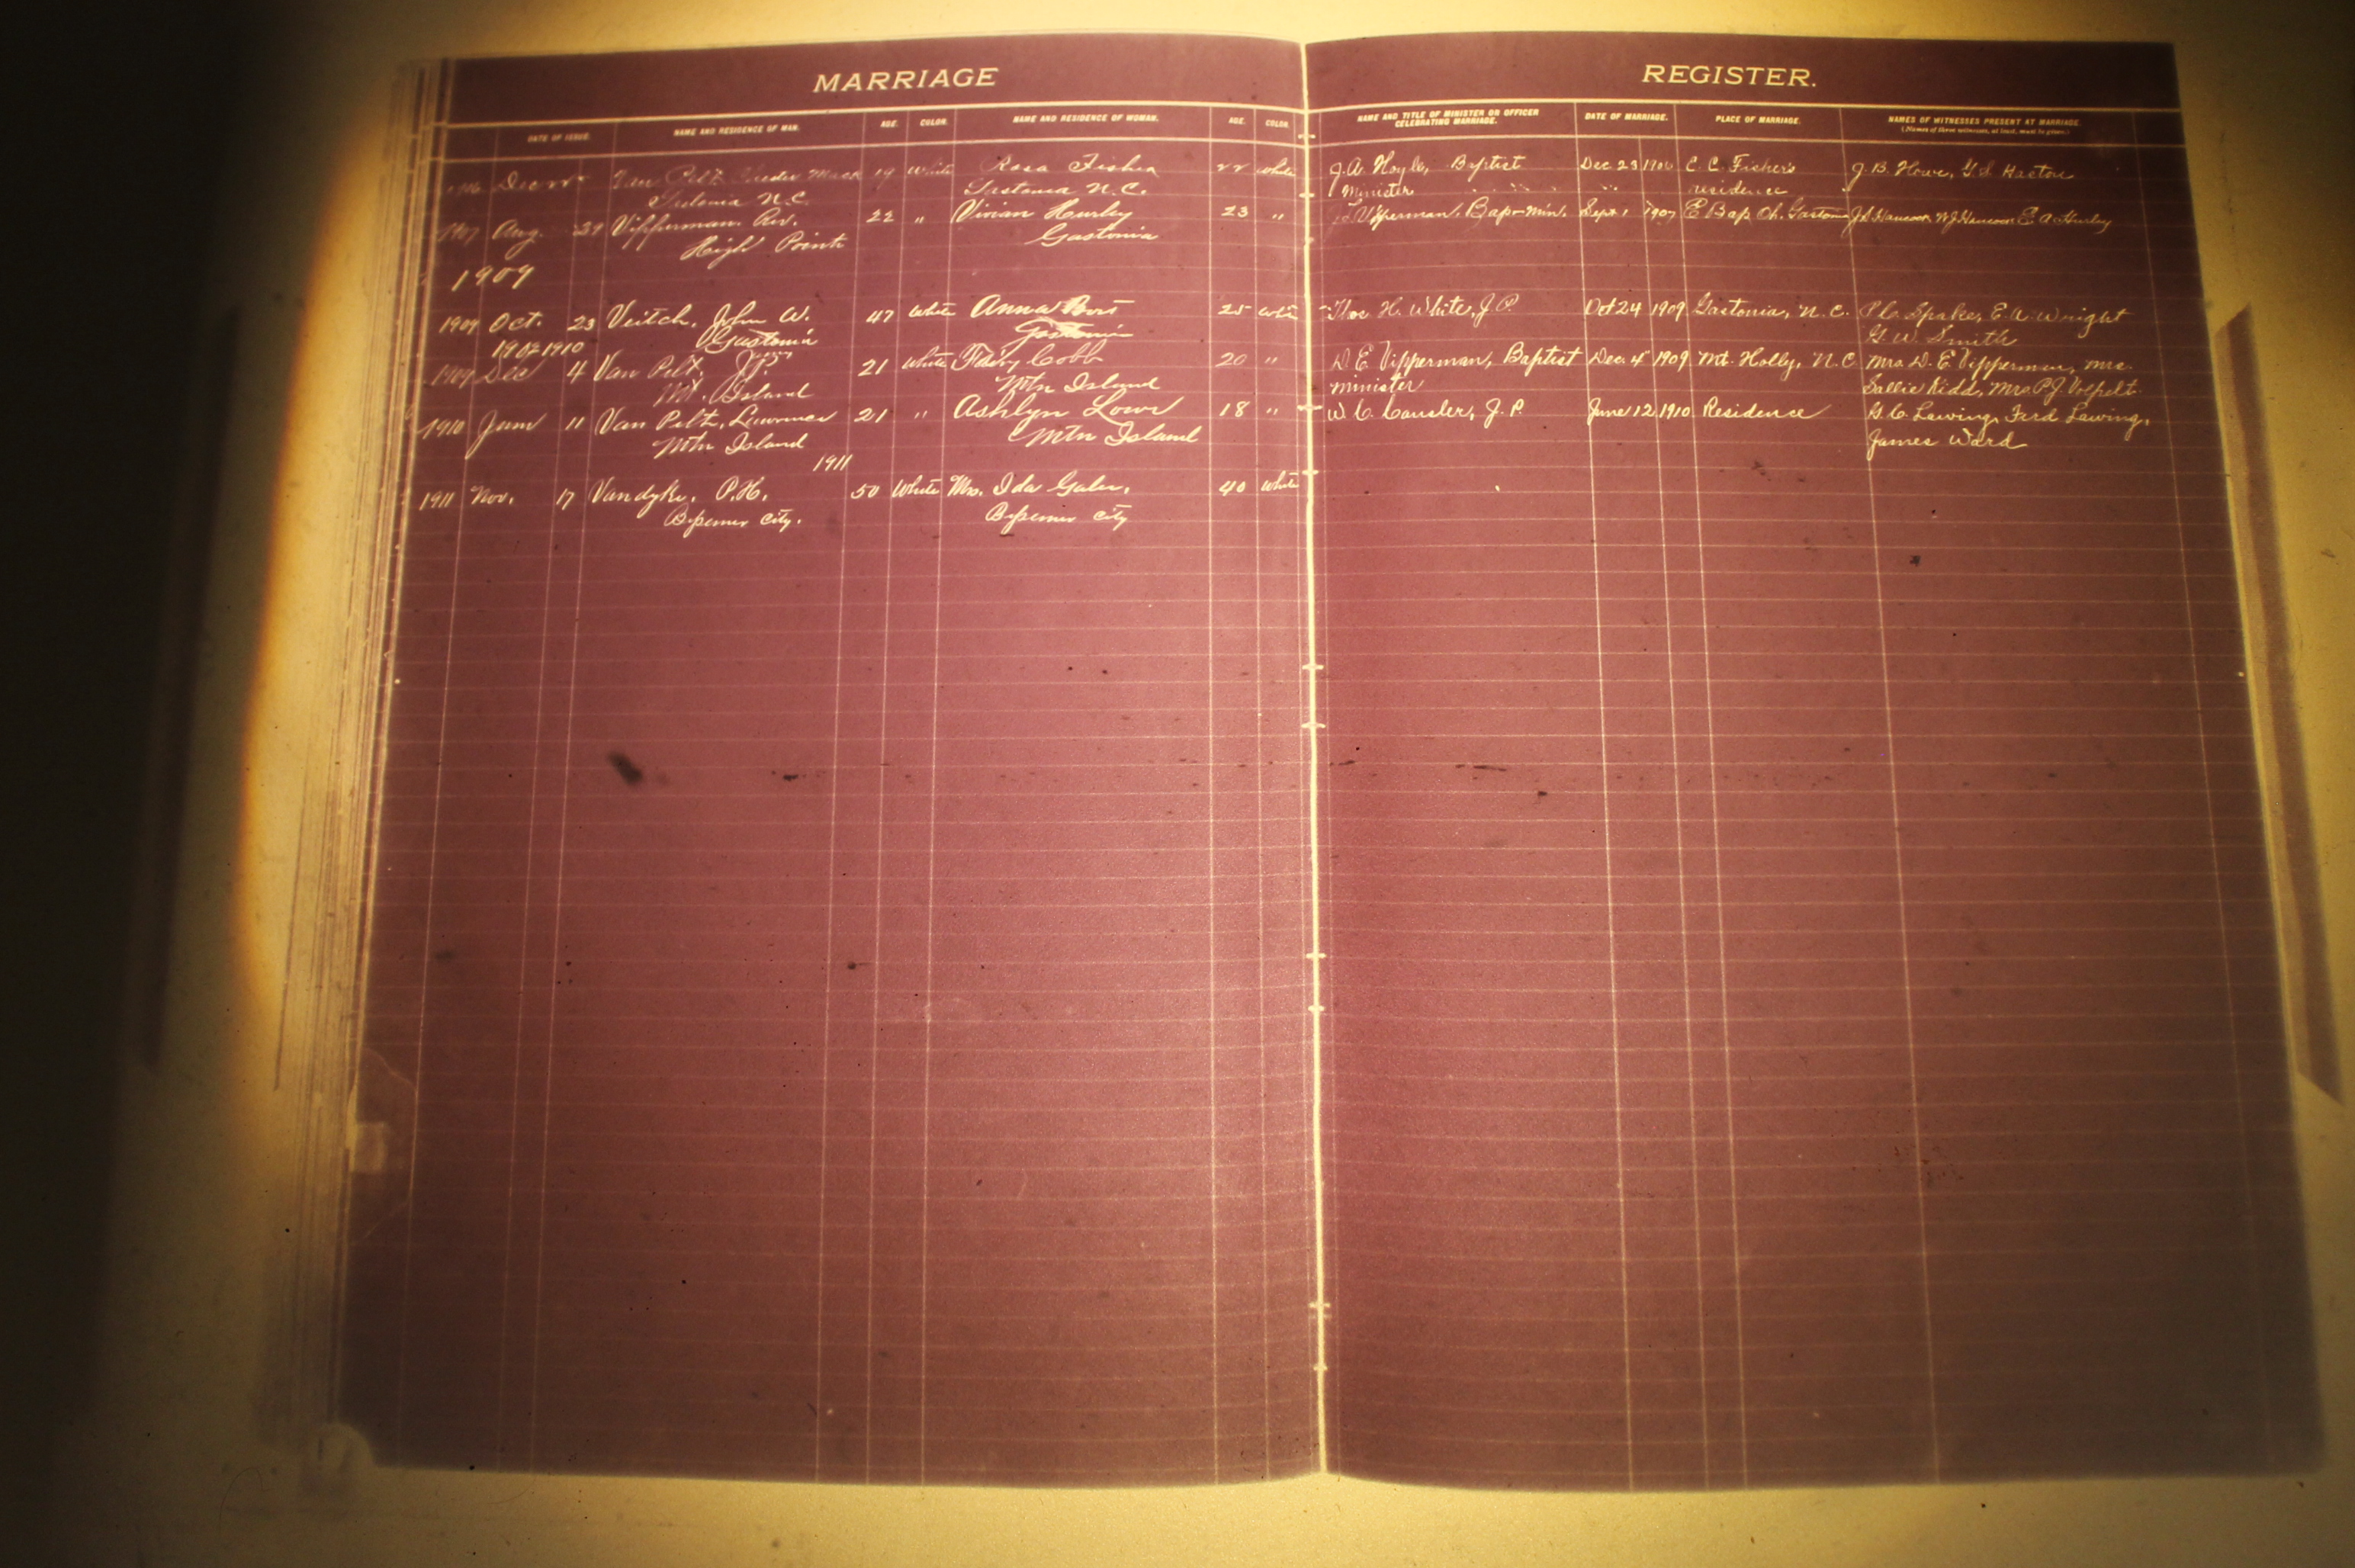 MARRIAGE
REGISTER.
DATE OF ISSUE. NAME AND RESIDENCE OF MAN. AGE. COLOR. NAME AND RESIDENCE OF WOMAN. AGE. COLOR.
NAME AND TITLE OF MINISTER OR OFFICER CELEBRATING MARRIAGE. DATE OF MARRIAGE. PLACE OF MARRIAGE. NAMES OF WITNESSES PRESENT AT MARRIAGE.
(Names of three witnesses, at least, must be given.)
1906 Dec 22 Van Pelt, Mack 19 White Rosa Fisher 22 White J. A. Hoyle, Baptist Dec 23 1906 C. C. Fisher's J. B. Howe,
Gastonia N.C. Gastonia N.C. Minister residence
1907 Aug. 29 Vipperman. Rev. 22 " Vivian Hurley 23 " Vipperman. Bap- Min. Sept 1 1907 E Bap Ch. Gastonia J. L. Hancock W J Hancock E. A. Hurley
High Point Gastonia
1909
1909 Oct. 23 Veitch, John W. 47 White Anna 25 White Thos H. White, J. P. Oct 24 1909 Gastonia, N. C. P. C. Spake, E. A. Wright
Gastonia Gastonia G. W. Smith
1910
1909 Dec 4 Van Pelt, 21 White Cobb 20 " D. E. Vipperman, Baptist Dec. 4" 1909 Mt. Holly, N. C Mrs D. E. Vipperman, Mrs.
Mt. Island Mtn Island minister Sallie Kidd, Mrs P. J.
1910 June 11 Van Pelt, Lawrence 21 " Ashlyn Lowe 18 " W. C. Cansler, J. P. June 12 1910 Residence G. C. Lawing, Ferd Lawing,
Mtn Island Mtn Island James Ward
1911
1911 Nov. 17 Vandyke, P. H. 50 White Mrs. Ida 40 White
Bessemer City. Bessemer City